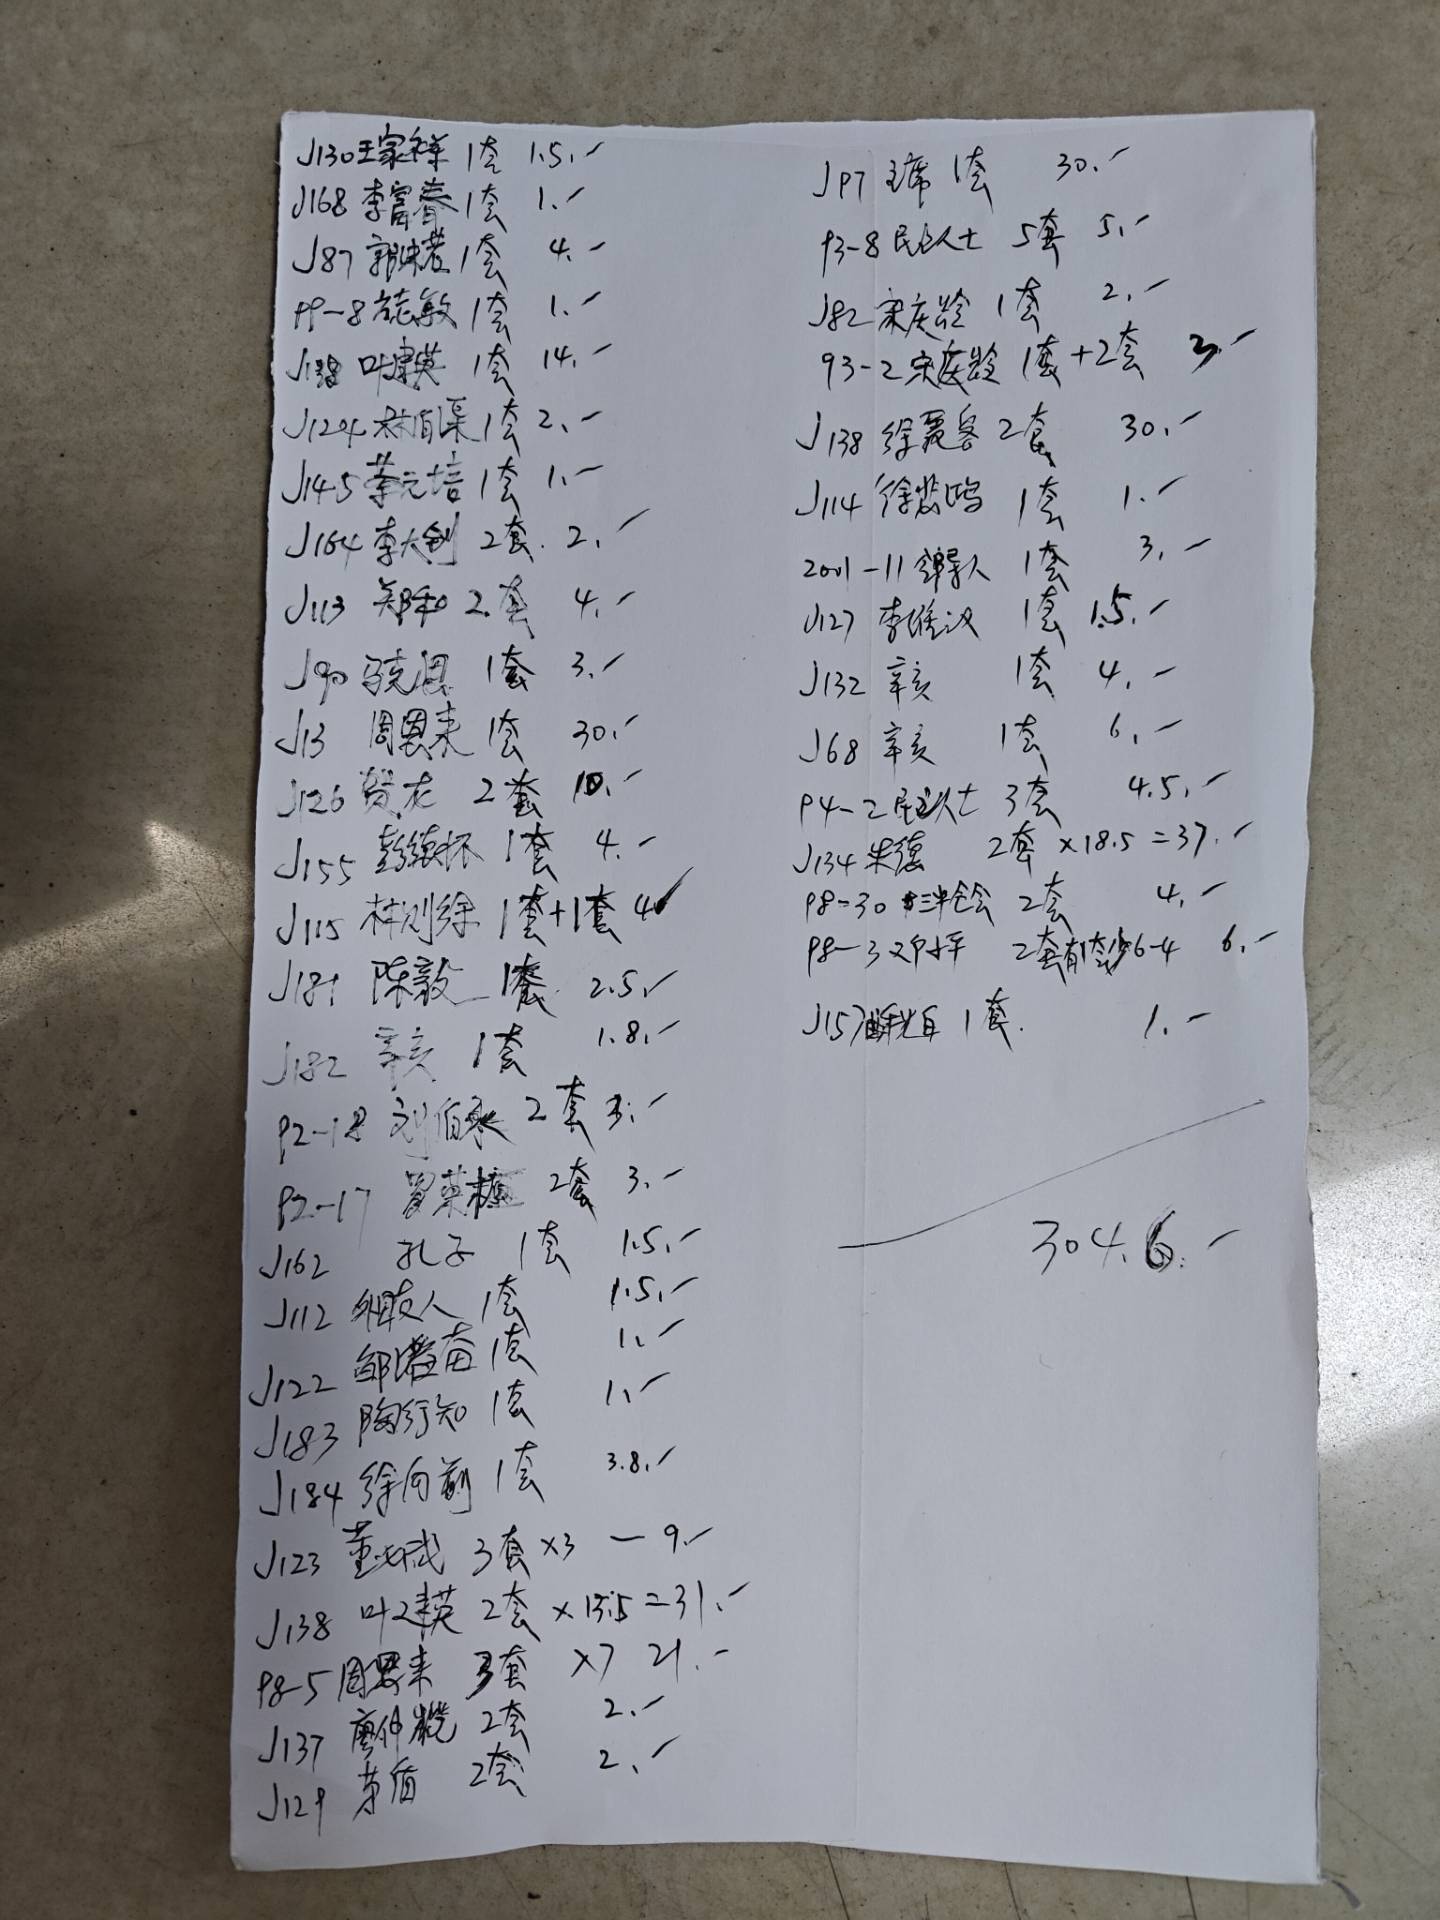 J130王家祥 1套 1.5.-
J168 李富春 1套 1.-
J87 郭沫若 1套 4.-
99-8 方志敏 1套 1.-
J138 叶剑英 1套 14.-
J124 林伯渠 1套 2.-
J145 蔡元培 1套 1.-
J164 李大钊 2套. 2.-
J113 郑和 2套 4.-
J90 马克思 1套 3.-
J13 周恩来 1套 30.-
J126 贺龙 2套 10.-
J155 彭德怀 1套 4.-
J115 林则徐 1套+1套 4-
J181 陈毅 1套 2.5.-
J182 辛亥 1套 1.8.-
92-18 刘伯承 2套 3.-
92-17 罗荣桓 2套 3.-
J162 孔子 1套 1.5.-
J112 外国友人 1套 1.5.-
J122 邹韬奋 1套 1.-
J183 陶行知 1套 1.-
J184 徐向前 1套 3.8.-
J123 董必武 3套×3 - 9.-
J138 叶剑英 2套×15.5=31.-
98-5 周恩来 3套 ×7 21.-
J137 廖仲恺 2套 2.-
J129 茅盾 2套 2.-
J97 主席 1套 30.-
93-8 民主人士 5套 5.-
J82 宋庆龄 1套 2.-
93-2 宋庆龄 1套+2套 3.-
J138 徐霞客 2套 30.-
J114 徐悲鸿 1套 1.-
2001-11 领导人 1套 3.-
J127 李维汉 1套 1.5.-
J132 辛亥 1套 4.-
J68 辛亥 1套 6.-
94-2 民主人士 3套 4.5.-
J134 朱德 2套×18.5=37.-
98-30 十一届三中全会 2套 4.-
98-3 邓小平 2套有1套少6-4 6.-
J157 陶铸 1套. 1.-
304.6.-